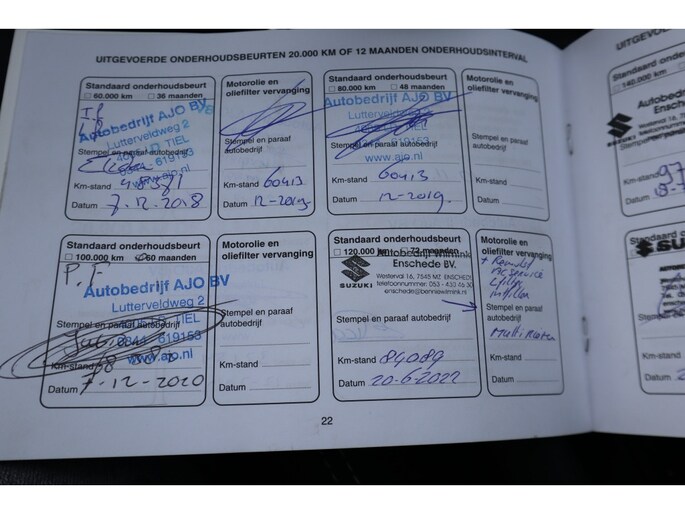 UITGEVOERDE ONDERHOUDSBEURTEN 20.000 KM OF 12 MAANDEN ONDERHOUDSINTERVAL
Standaard onderhoudsbeurt
□ 60.000 km □ 36 maanden
Autobedrijf AJO BV
Lutterveldweg 2
TIEL
Stempel en paraaf autobedrijf
0344 - 619153
www.ajo.nl
Km-stand
Datum 7-12-2018
Motorolie en
oliefilter vervanging
Stempel en paraaf
autobedrijf
Km-stand 60413
Datum 12-2019
Standaard onderhoudsbeurt
□ 80.000 km □ 48 maanden
Autobedrijf AJO BV
Lutterveldweg 2
TIEL
Stempel en paraaf autobedrijf
619153
www.ajo.nl
Km-stand 60413
Datum 12-2019
Motorolie en
oliefilter vervanging
Stempel en paraaf
autobedrijf
Km-stand
Datum
Standaard onderhoudsbeurt
□ 100.000 km 60 maanden
P.F
Autobedrijf AJO BV
Lutterveldweg 2
TIEL
Stempel en paraaf autobedrijf
0344 - 619153
www.ajo.nl
Km-stand
Datum 7-12-2020
Motorolie en
oliefilter vervanging
Stempel en paraaf
autobedrijf
Km-stand
Datum
Standaard onderhoudsbeurt
□ 120.000 km □ 72 maanden
Autobedrijf Wilmink
Enschede BV.
Westerval 16, 7545 MZ ENSCHEDE
telefoonnummer: 053 - 433 46 30
enschede@benniewilmink.nl
SUZUKI
Km-stand 84089
Datum 20-6-2022
Motorolie en
oliefilter vervanging
Stempel en paraaf
autobedrijf
Km-stand
Datum
22
UITGEVOE
Standaard
□ 140.000 km
Autobed
SUZUKI
Km-stand 97
Datum
Standaard
SUZ
Stempel
autobedrijf
Km-stand
Datum